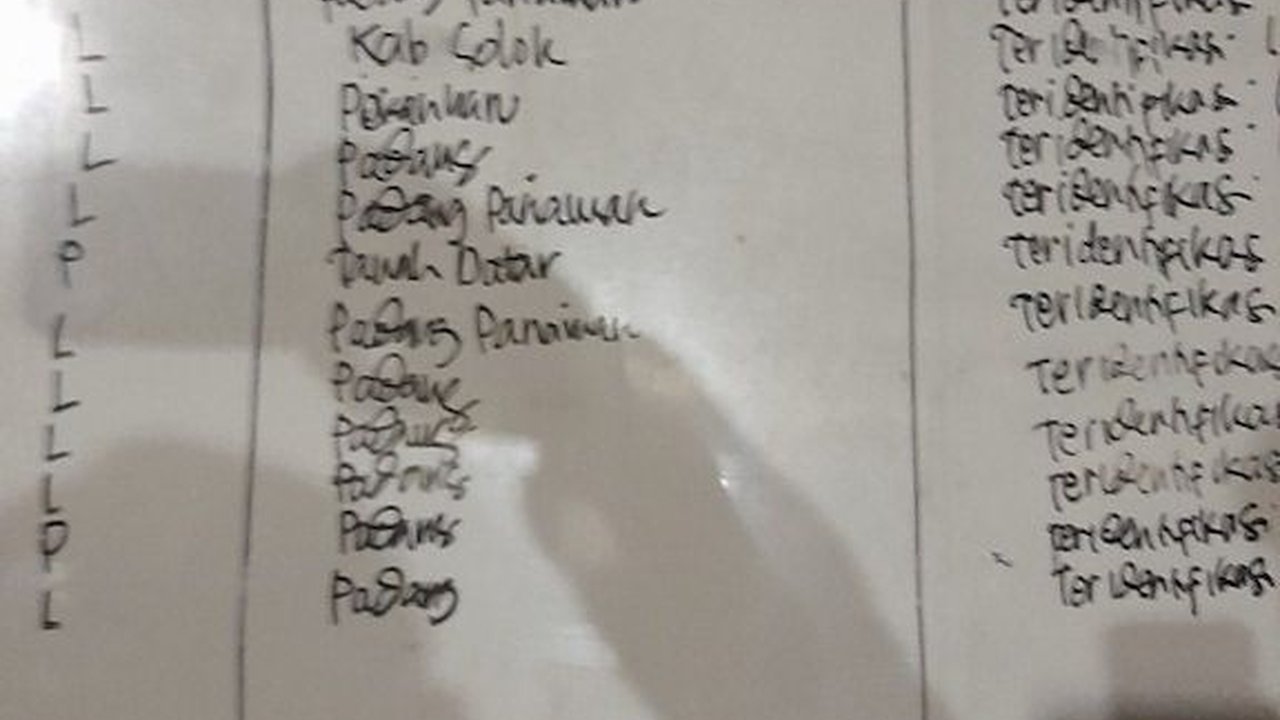 Padang Pariaman Teridentifikasi
L Kab Solok Teridentifikasi
L Pasaman Teridentifikasi
L Padang Teridentifikasi
L Padang Pariaman Teridentifikasi
P Tanah Datar Teridentifikasi
L Padang Pariaman Teridentifikasi
L Padang Teridentifikasi
L Padang Teridentifikasi
L Padang Teridentifikasi
P Padang Teridentifikasi
L Padang Teridentifikasi